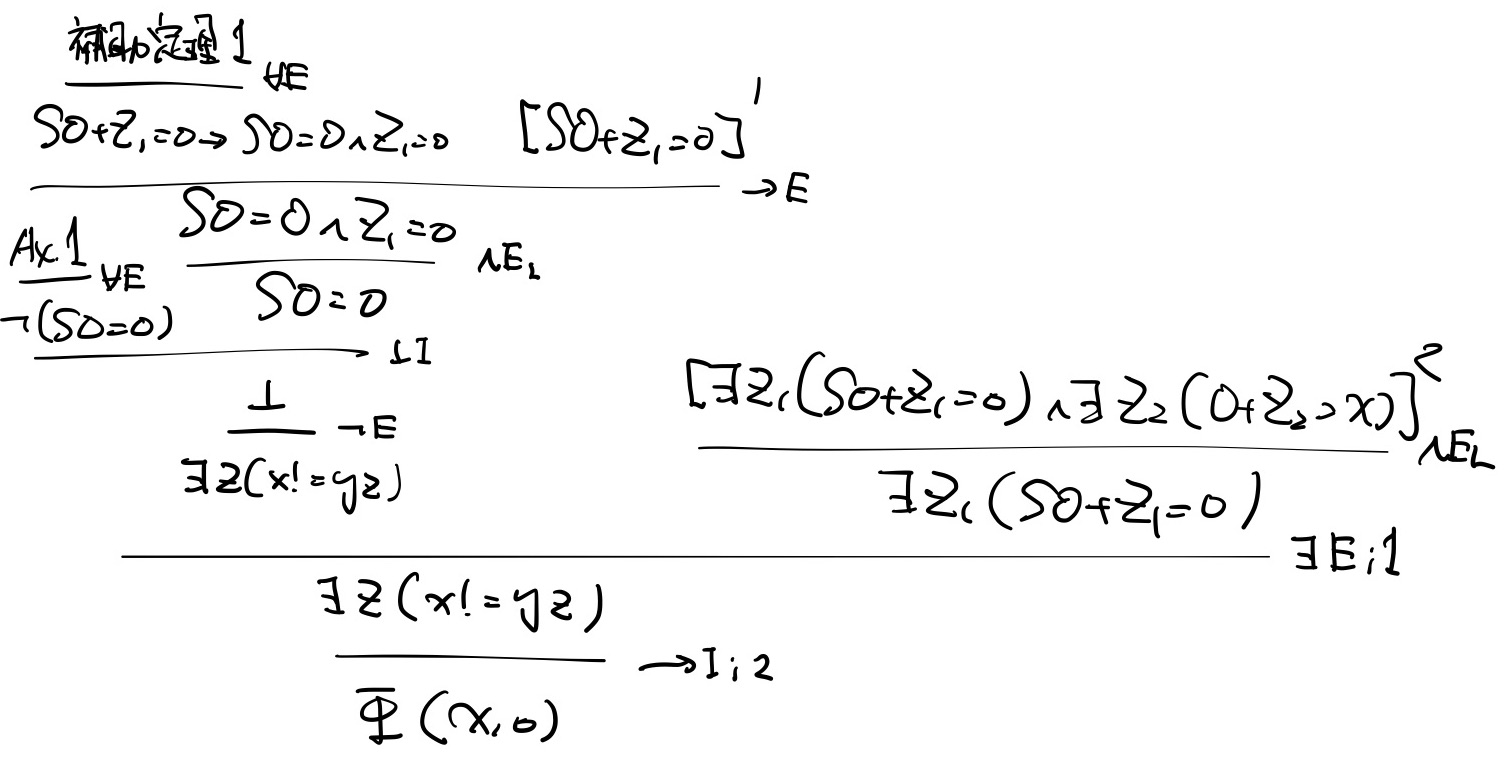 補助定理1 ∀E
S0+Z₁=0→S0=0∧Z₁=0 [S0+Z₁=0]¹
→E
S0=0∧Z₁=0
∧E_L
Ax.1 ∀E
S0=0
¬(S0=0)
⊥I
⊥
¬E
∃z(x!=yz)
[∃Z₁(S0+Z₁=0)∧∃Z₂(0+Z₂=x)]²
∧E_L
∃Z₁(S0+Z₁=0)
∃E;1
∃z(x!=yz)
→I;2
Φ(x,0)